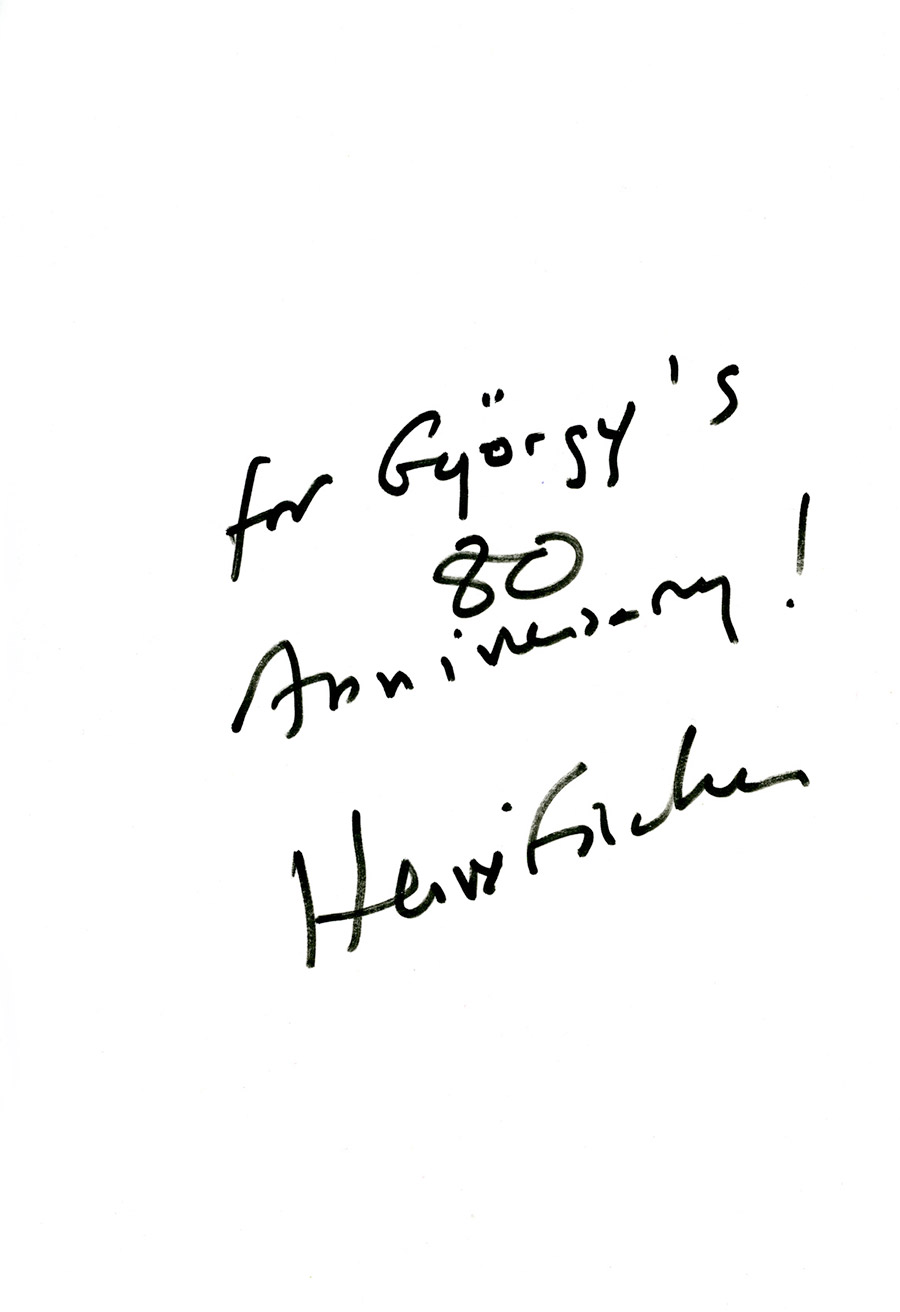 for György's
80
Anniversary!
Hervé Fischer